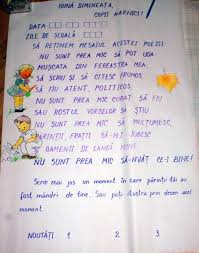 BUNĂ DIMINEAȚA,
COPII HARNICI!
DATA
ZILE DE ȘCOALĂ
SĂ REȚINEM MESAJUL ACESTEI POEZII:
NU SUNT PREA MIC SĂ POT UDA
MUȘCATA DIN FEREASTRA MEA,
SĂ SCRIU ȘI SĂ CITESC FRUMOS,
SĂ FIU ATENT, POLITICOS,
NU SUNT PREA MIC CURAT SĂ FIU
SAU ROSTUL VORBELOR SĂ ȘTIU
NU SUNT PREA MIC SĂ MULȚUMESC,
PĂRINȚII, FRAȚII SĂ-MI IUBESC
OAMENII DE LÂNGĂ MINE
NU SUNT PREA MIC SĂ-NVĂȚ CE-I BINE!
Scrie mai jos un moment în care părinții tăi au
fost mândri de tine. Sau poți ilustra prin desen acel
moment.
NOUTĂȚI 1 2 3